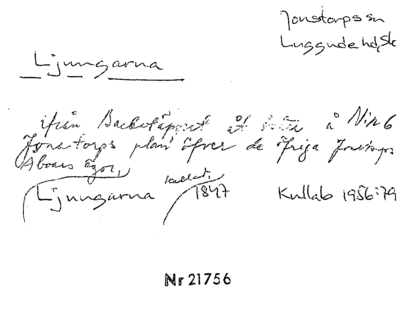 Jonstorps sn
Luggude hd, Sk
Ljungarna
ifrån åt å No 6
Jonstorps plan öfver de öfriga Jonstorps
Aboars ägor,
Ljungarna kallad. 1847 Kullab 1956:79
Nr 21756